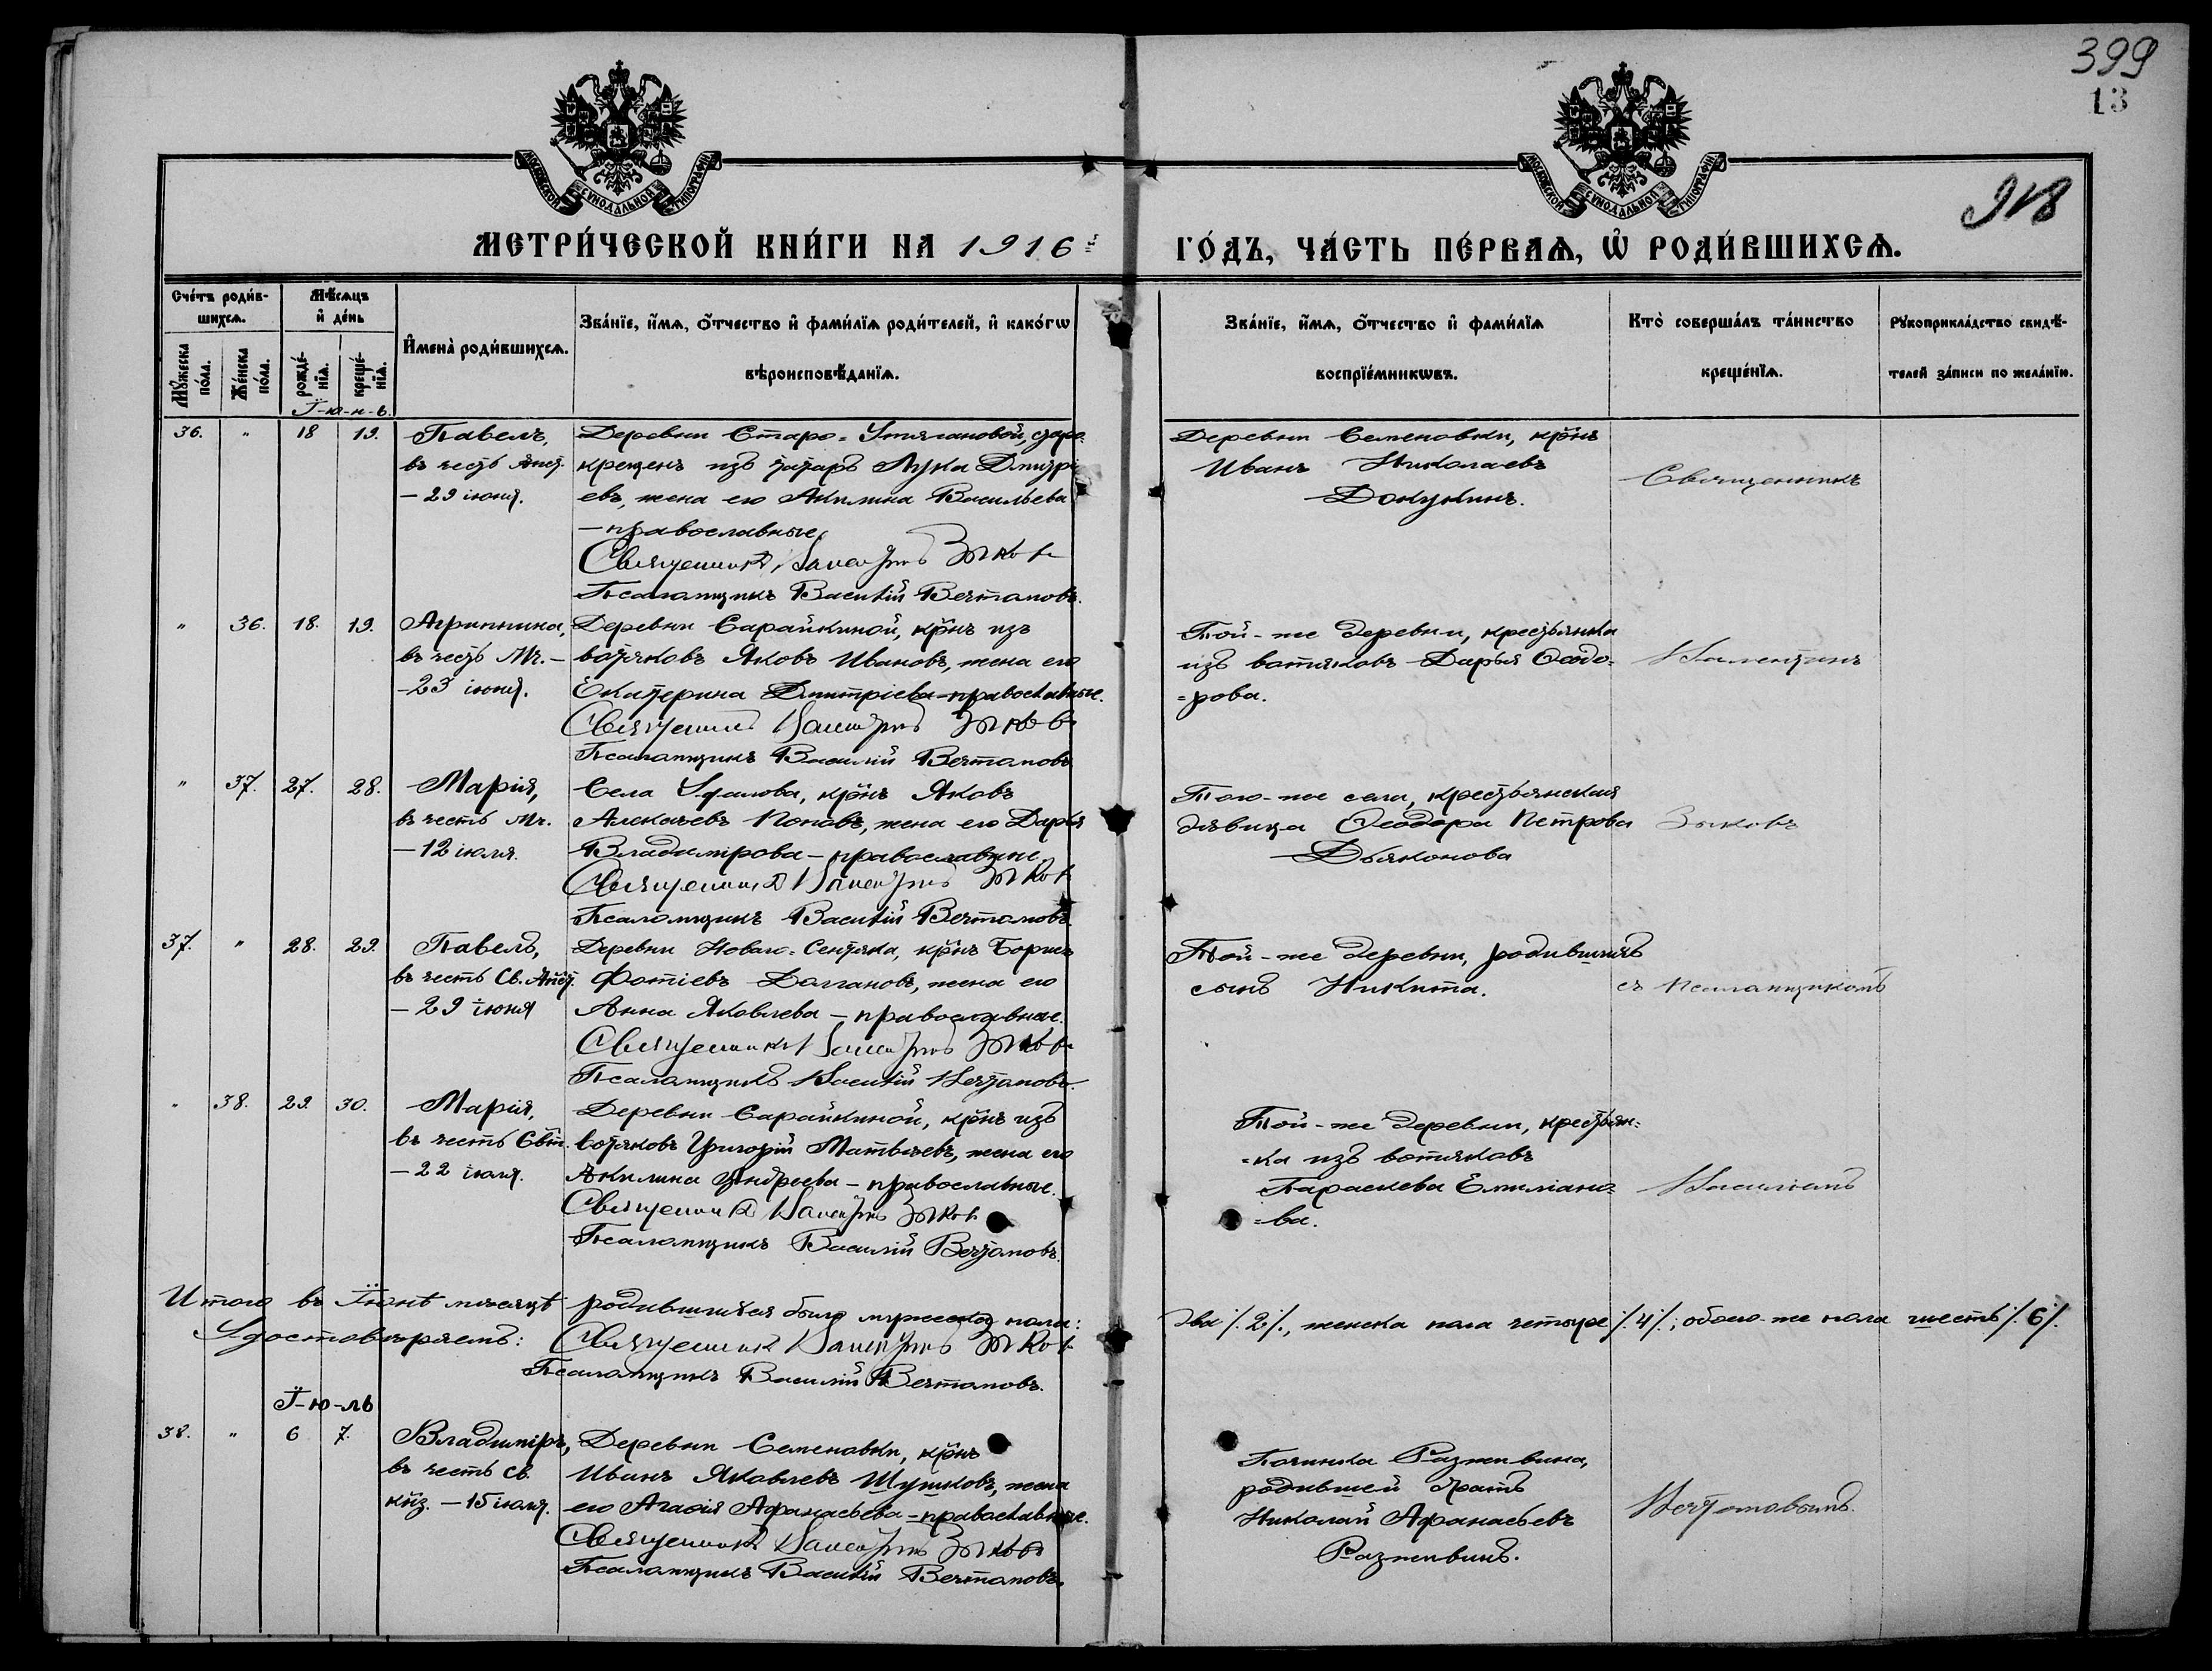 399
13
918
МОСКОВСКОЙ СѴНОДАЛЬНОЙ ТИПОГРАФІИ
МОСКОВСКОЙ СѴНОДАЛЬНОЙ ТИПОГРАФІИ
МЕТРИ́ЧЕСКОЙ КНИ́ГИ НА 1916 й
ГО́ДЪ, ЧА́СТЬ ПЕ́РВАѦ, Ѡ҆ РОДИ́ВШИХСѦ.
Сче́тъ роди́в-
шихсѧ.
Мѣ́сѧцъ
и҆ де́нь
Мꙋ́жеска
по́ла.
Же́нска
по́ла.
рожде́-
нїѧ.
креще́-
нїѧ.
И҆мена̀ роди́вшихсѧ.
Зва́нїе, и҆́мѧ, ѻ҆́тчество и҆ фами́лїѧ роди́телей, и҆ како́гѡ
вѣроисповѣ́данїѧ.
Зва́нїе, и҆́мѧ, ѻ҆́тчество и҆ фами́лїѧ
воспрїе́мникѡвъ.
Кто̀ соверша́лъ та́инство
креще́нїѧ.
Рꙋкоприкла́дство свидѣ́-
телей за́писи по жела́нїю.
І-ю-н-ь.
36. " 18 19. Павелъ,
въ честь Апст.
– 29 іюня.
Деревни Старо-Утягановой, старо-
крещенъ изъ татаръ Лука Дмитрі
евъ, жена его Акилина Васильева
– православные.
Священникъ Валентинъ Зыковъ
Псаломщикъ Василій Вечтомовъ.
Деревни Семеновки, крнъ
Иванъ Николаевъ
Докукинъ.
Священникъ
" 36. 18. 19. Агриппина,
въ честь Мч. –
– 23 іюня.
Деревни Сарайкиной, крнъ изъ
вотяковъ Яковъ Ивановъ, жена его
Екатерина Дмитріева – православные.
Священникъ Валентинъ Зыковъ
Псаломщикъ Василій Вечтомовъ
Той-же деревни, крестьянка
изъ вотяковъ Дарья Ѳеодо-
=рова.
Валентинъ
" 37. 27. 28. Марія,
въ честь Мч.
– 12 іюля.
Села, крнъ Яковъ
Алексѣевъ Поповъ, жена его Дарья
Владимірова – православные.
Священникъ Валентинъ Зыковъ
Псаломщикъ Василій Вечтомовъ.
Того-же села, крестьянская
дѣвица Ѳеодора Петрова
Дьяконова
Зыковъ
37. " 28. 29. Павелъ,
въ честь Св. Апст.
– 29 іюня
Деревни Новаго-Сентяка, крнъ Борисъ
Фотіевъ Долгановъ, жена его
Анна Яковлева – православные.
Священникъ Валентинъ Зыковъ
Псаломщикъ Василій Вечтомовъ.
Той-же деревни, родившихъ
сынъ Никита.
съ псаломщикомъ
" 38. 29. 30. Марія,
въ честь Свт.
– 22 іюля.
Деревни Сарайкиной, крнъ изъ
вотяковъ Григорій Матвѣевъ, жена его
Акилина Андреева – православные.
Священникъ Валентинъ Зыковъ
Псаломщикъ Василій Вечтомовъ.
Той-же деревни, крестьян-
=ка изъ вотяковъ
Параскева Емиліано-
=ва.
Василіемъ
Итого въ Іюнѣ мѣсяцѣ родившихся было мужеска пола:
два /. 2 /., женска пола четыре /. 4 /.; обоего же пола шесть /. 6 /.
Удостовѣряемъ: Священникъ Валентинъ Зыковъ
Псаломщикъ Василій Вечтомовъ.
І-ю-ль
38. " 6 7. Владиміръ,
въ честь св.
кнз. – 15 іюля.
Деревни Семеновки, крнъ
Иванъ Яковлевъ Шушковъ, жена
его Агаѳія Афанасьева – православные.
Священникъ Валентинъ Зыковъ
Псаломщикъ Василій Вечтомовъ.
Починка Разживина,
родившей братъ
Николай Афанасьевъ
Разживинъ.
Вечтомовымъ.